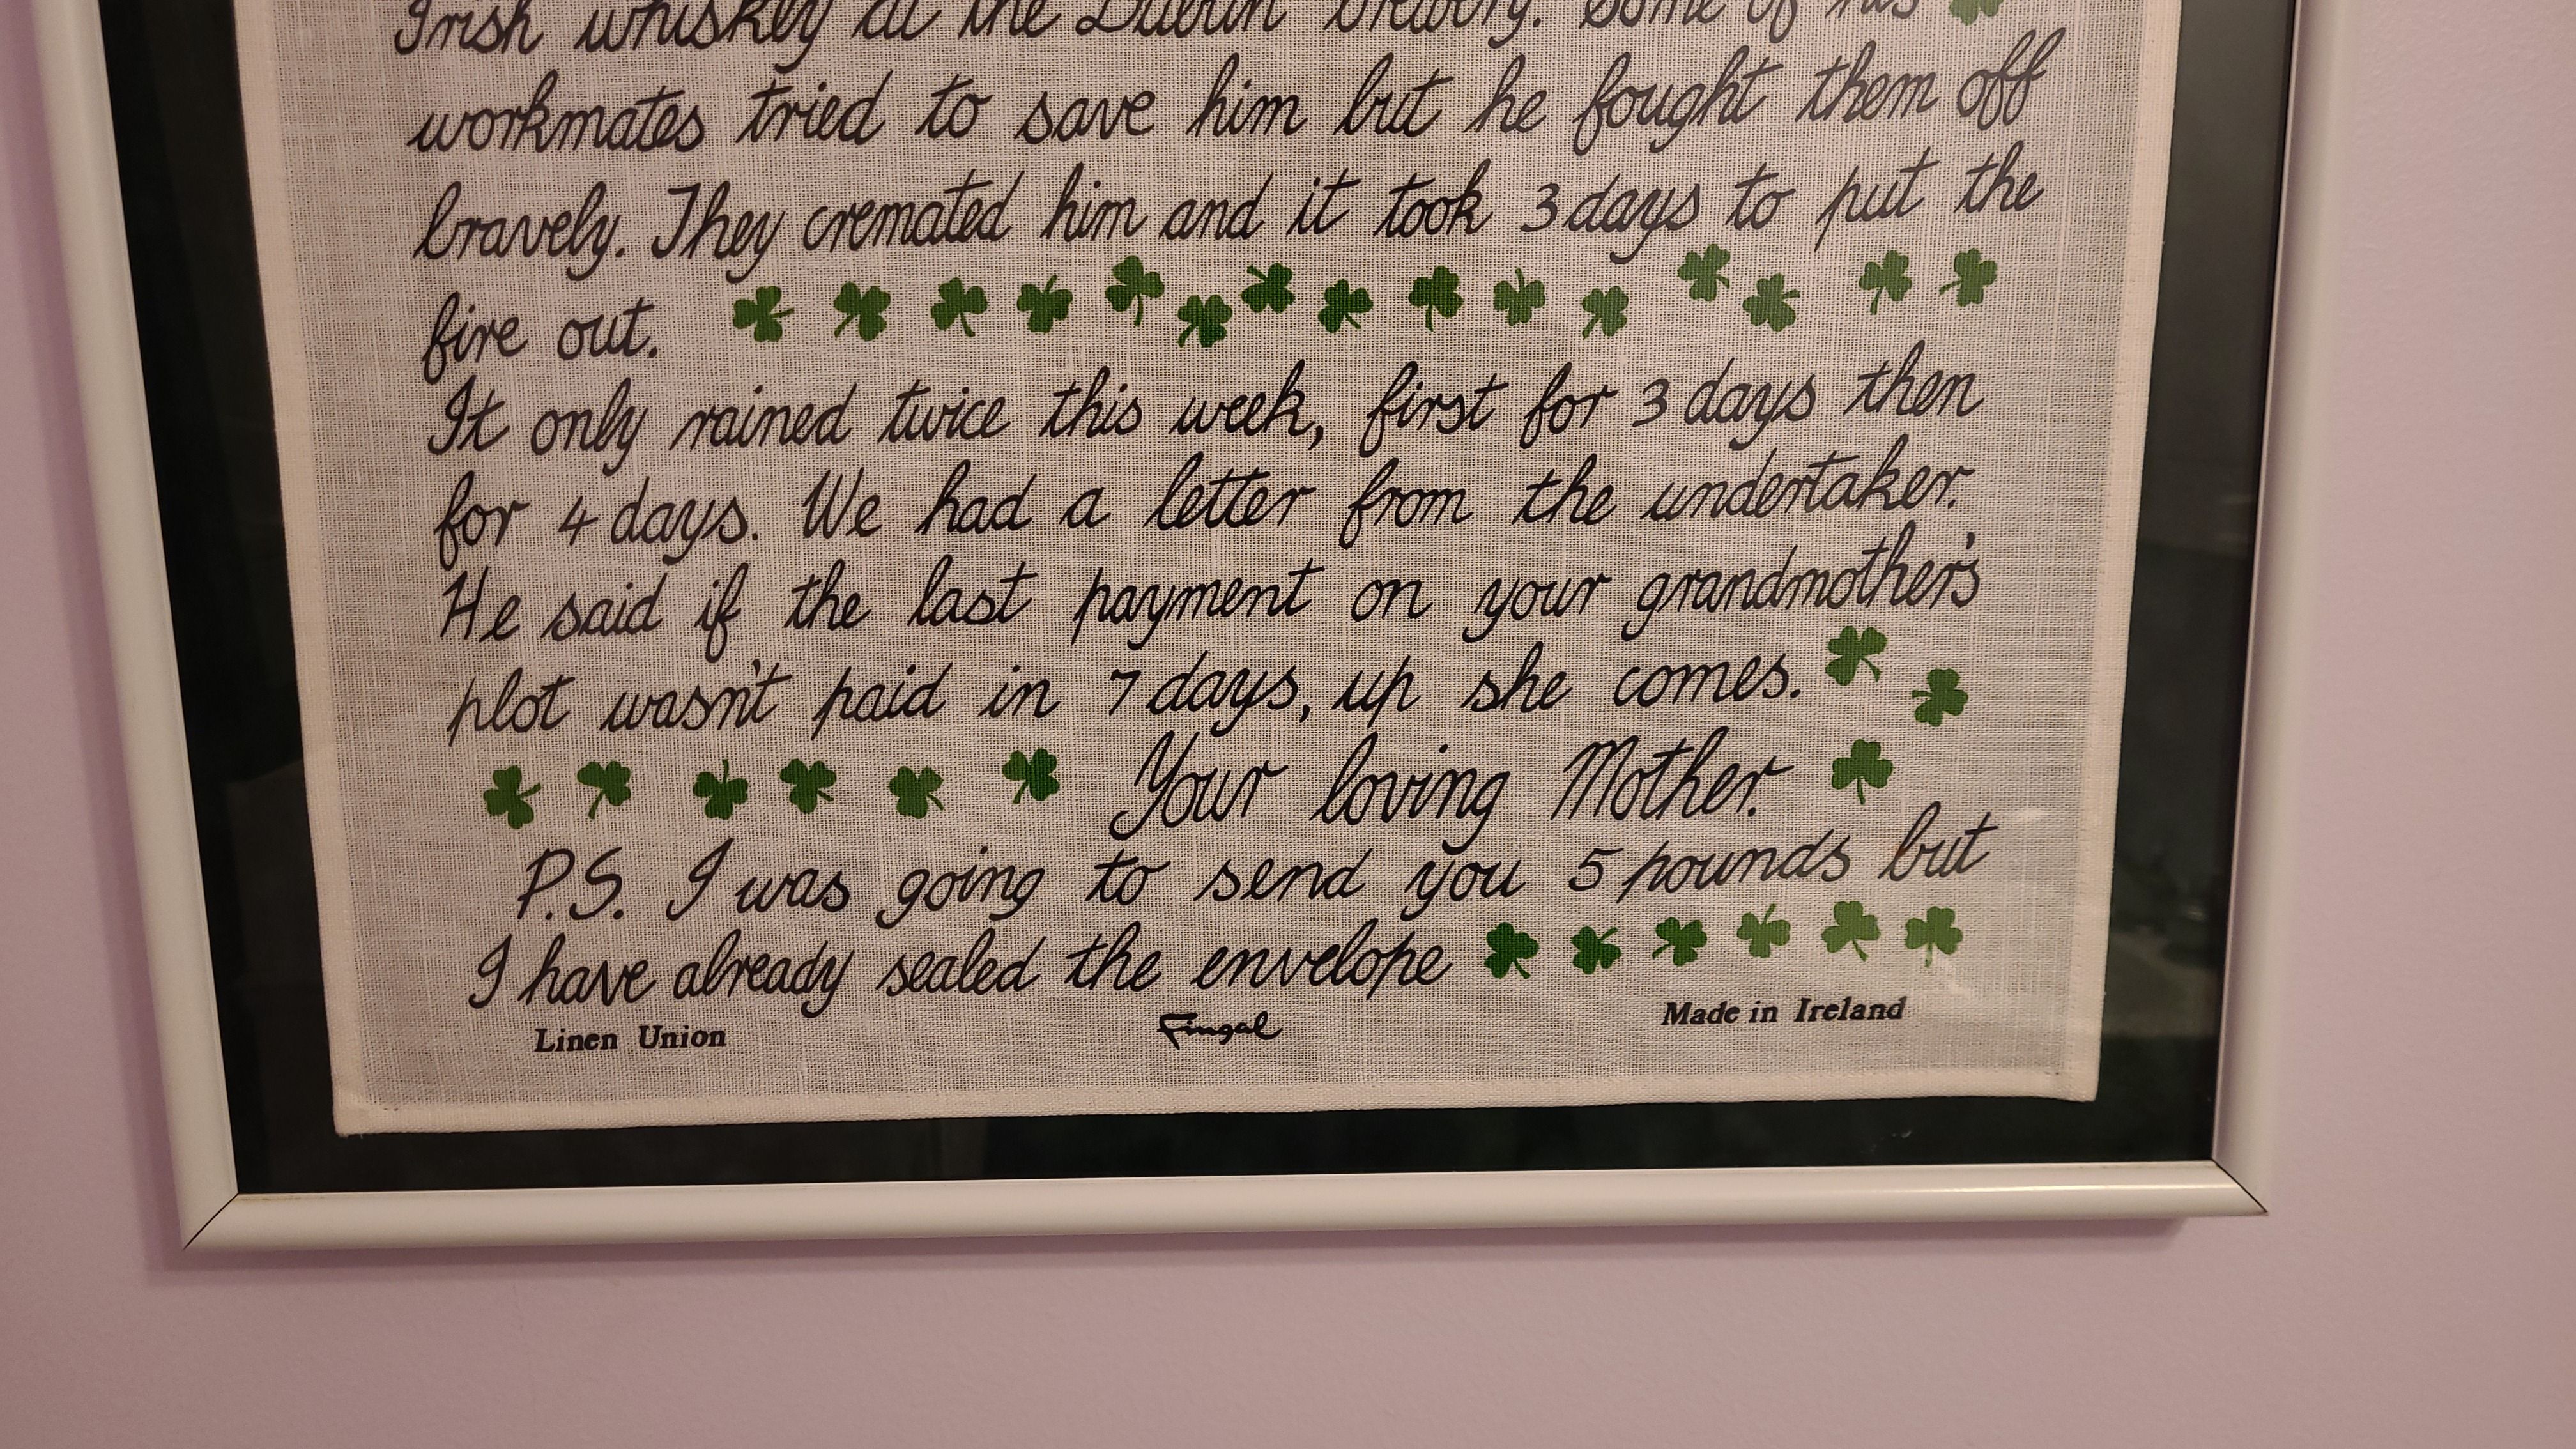 Irish whiskey at the Dublin Brewery. Some of his
workmates tried to save him but he fought them off
bravely. They cremated him and it took 3 days to put the
fire out.
It only rained twice this week, first for 3 days then
for 4 days. We had a letter from the undertaker.
He said if the last payment on your grandmother's
plot wasn't paid in 7 days, up she comes.
Your loving Mother.
P.S. I was going to send you 5 pounds but
I have already sealed the envelope
Linen Union Fingal Made in Ireland